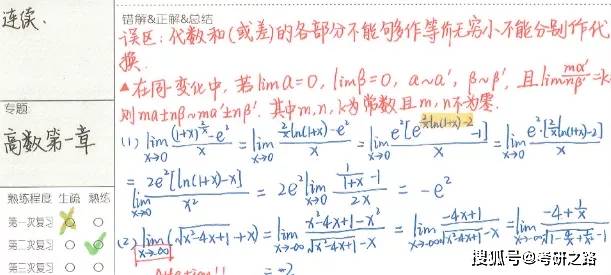 连续.
专题:
高数第一章
熟练程度 生疏 熟练
第一次复习
第二次复习
第三次复习
错解&正解&总结
误区:代数和(或差)的各部分不能够多作等价无穷小不能分别作代
换.
▲在同一变化中,若limα=0, limβ=0, α~α′, β~β′, 且lim mα′/nβ′=k
则mα±nβ~mα′±nβ′. 其中m,n,k为常数且m,n不为零.
(1) lim x→0 ((1+x)^(2/x)-e²)/x = lim x→0 (e^(2/x ln(1+x))-e²)/x = lim x→0 e²[e^(2/x ln(1+x)-2)-1]/x = lim x→0 e²·[2/x ln(1+x)-2]/x
= lim x→0 2e²[ln(1+x)-x]/x² = 2e² lim x→0 (1/(1+x)-1)/2x = -e²
(2) lim x→-∞ (√x²-4x+1+x) = lim x→-∞ (x²-4x+1-x²)/(√x²-4x+1-x) = lim x→-∞ (-4x+1)/(√x²-4x+1-x) = lim x→-∞ (-4+1/x)/(-√1-4/x+1/x²-1)
= 2
搜狐号@考研之路